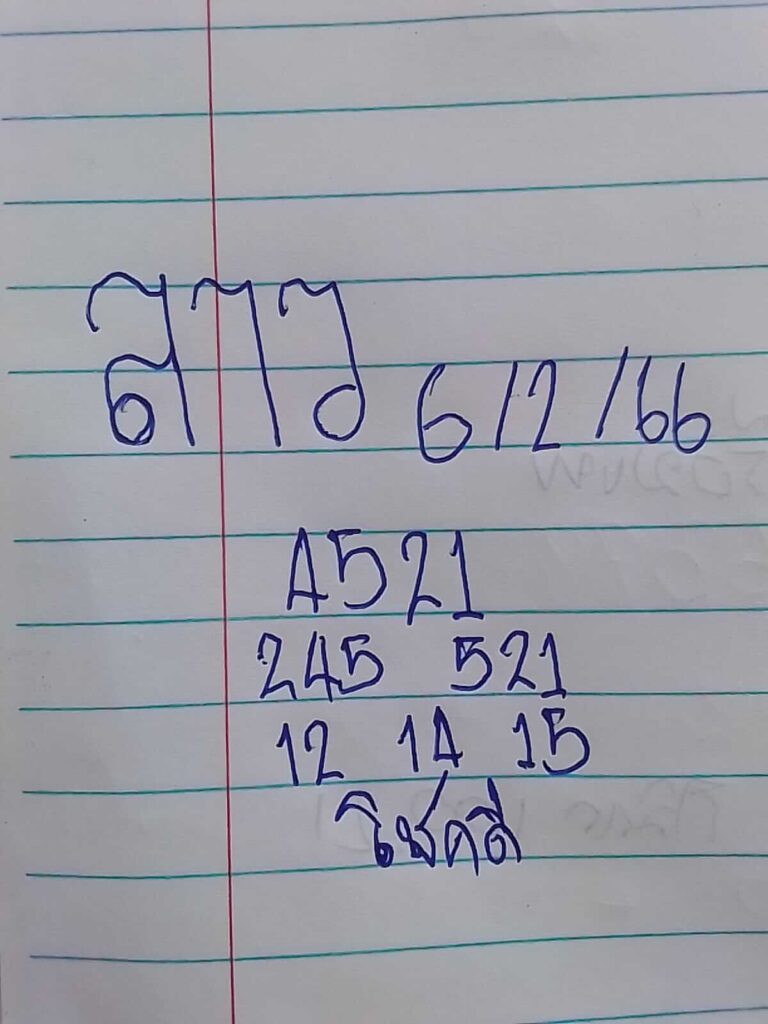 ลาว 6/2/66
4521
245 521
12 14 15
โชคดี